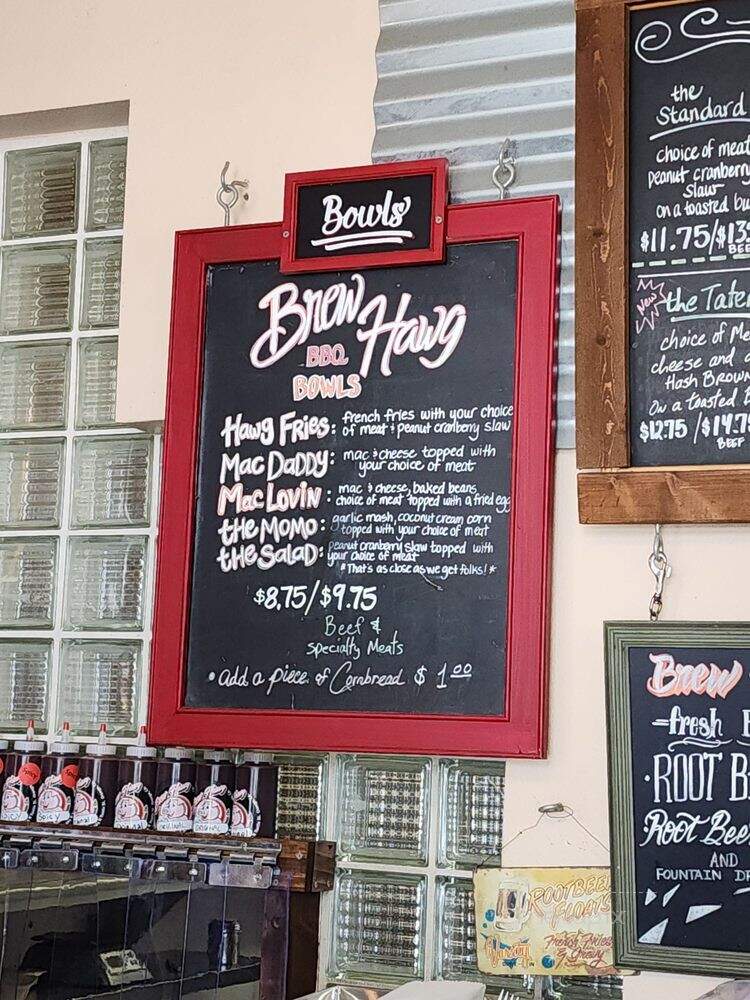 Bowls
Brew Hawg
BBQ
BOWLS
Hawg Fries: french fries with your choice
of meat & peanut cranberry slaw
Mac Daddy: mac & cheese topped with
your choice of meat
Mac Lovin: mac & cheese, baked beans,
choice of meat topped with a fried egg
the MOMO: garlic mash, coconut cream corn
topped with your choice of meat
the SALAD: peanut cranberry slaw topped with
your choice of meat
*That's as close as we get folks!*
$8.75/$9.75
Beef &
Specialty Meats
• add a piece of Cornbread $1.00
the
Standard
choice of meat
peanut cranberry
slaw
on a toasted
$11.75/$13
BEEF
New the Tater
choice of
cheese and
Hash Brown
On a toasted
$12.75/$14.75
BEEF
Brew
fresh
ROOT
Root Beer
AND
FOUNTAIN
ROOTBEER
FLOATS
French Fries
& Gravy
SPICY
ORIGINAL
ORIGINAL